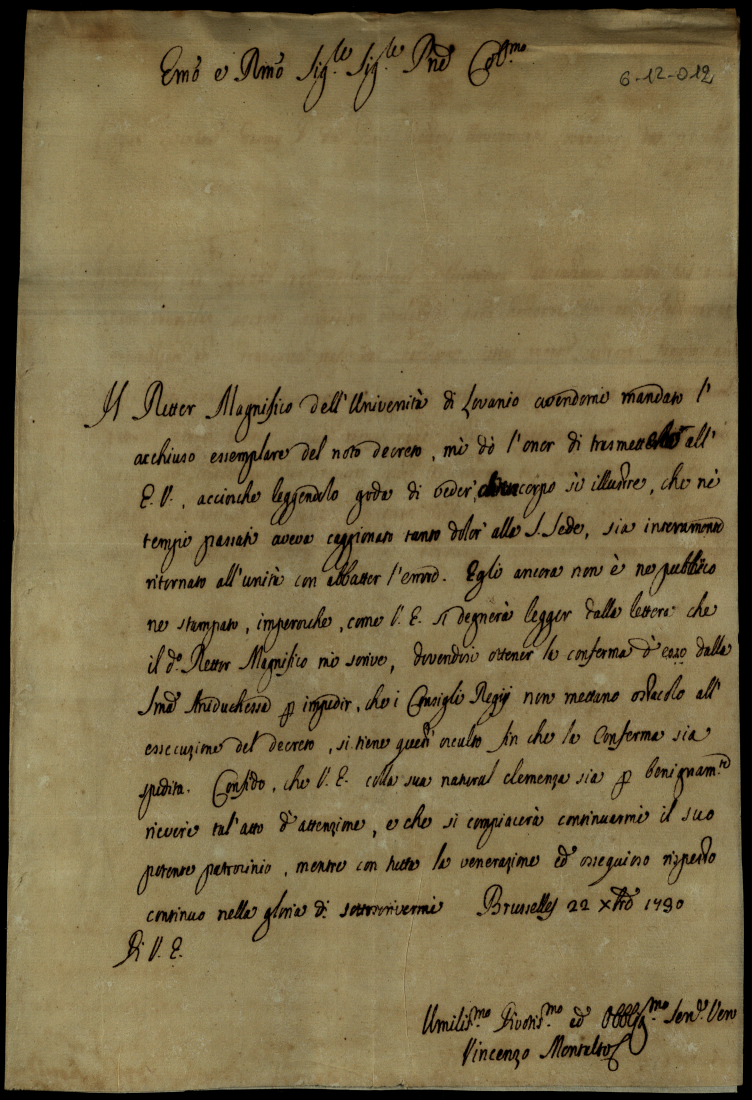 Emõ e Rmõ Sig.re Sig.re Pñe Col.mo
6-12-012
Il Retter Magnifico dell'Università di Lovanio avendomi mandato l'
acchiuso essemplare del noto decreto, mi dò l'onor di trasmetterlo all'
E.V., accioche leggendolo goda di veder, corpo sì illustre, che nè
tempi passati aveva caggionato tanto dolor' alla S. Sede, sia interamente
ritornato all'unità con abbatter l'errore. Egli ancora non è ne pubblico
ne stampato, imperoche, come V.E. si degnerà legger dalla lettera che
il d.º Rettor Magnifico mi scrive, dovendosi ottener la conferma d'esso dalla
Smã Arciduchessa p impedir, che i Consigli Regij non mettano ostacolo all'
essecuzione del decreto, si tiene questi occulto fin che la Conferma sia
spedita. Confido, che V.E. colla sua natural clemenza sia p benignam.te
ricevere tal'atto d'attenzione, e che si compiacerà continuarmi il suo
potente patrocinio, mentre con tutta la venerazione ed ossequioso rispetto
continuo nella gloria di sottoscrivermi Brusselles 22 Xbrõ 1730
Di V.E.
Umiliss.mo Divotis.mo ed Obblig.mo Serv.e Vero
Vincenzo Montalto